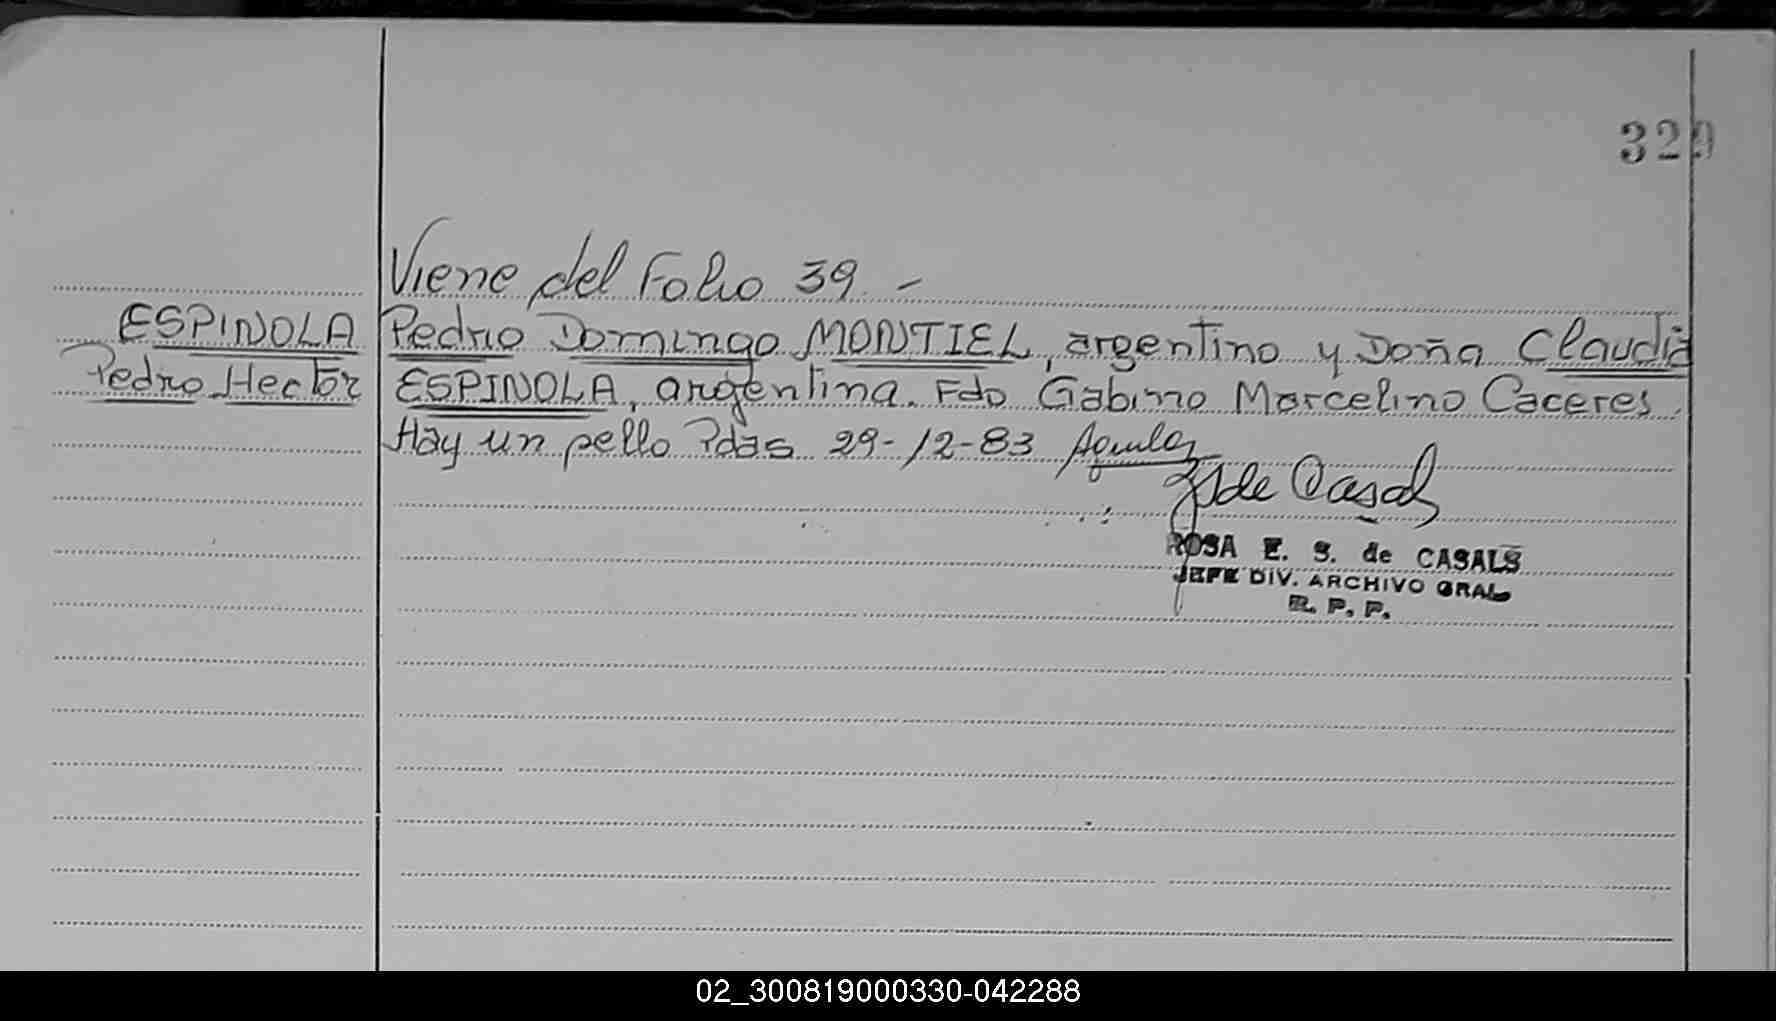 329
Viene del Folio 39.-
ESPINOLA Pedro Domingo MONTIEL, argentino y Doña Claudia
Pedro Hector ESPINOLA, argentina. Fdo Gabino Marcelino Caceres.
Hay un sello Pdas 29-12-83
de Casals
ROSA E. S. de CASALS
JEFE DIV. ARCHIVO GRAL
R. P. P.
02_300819000330-042288